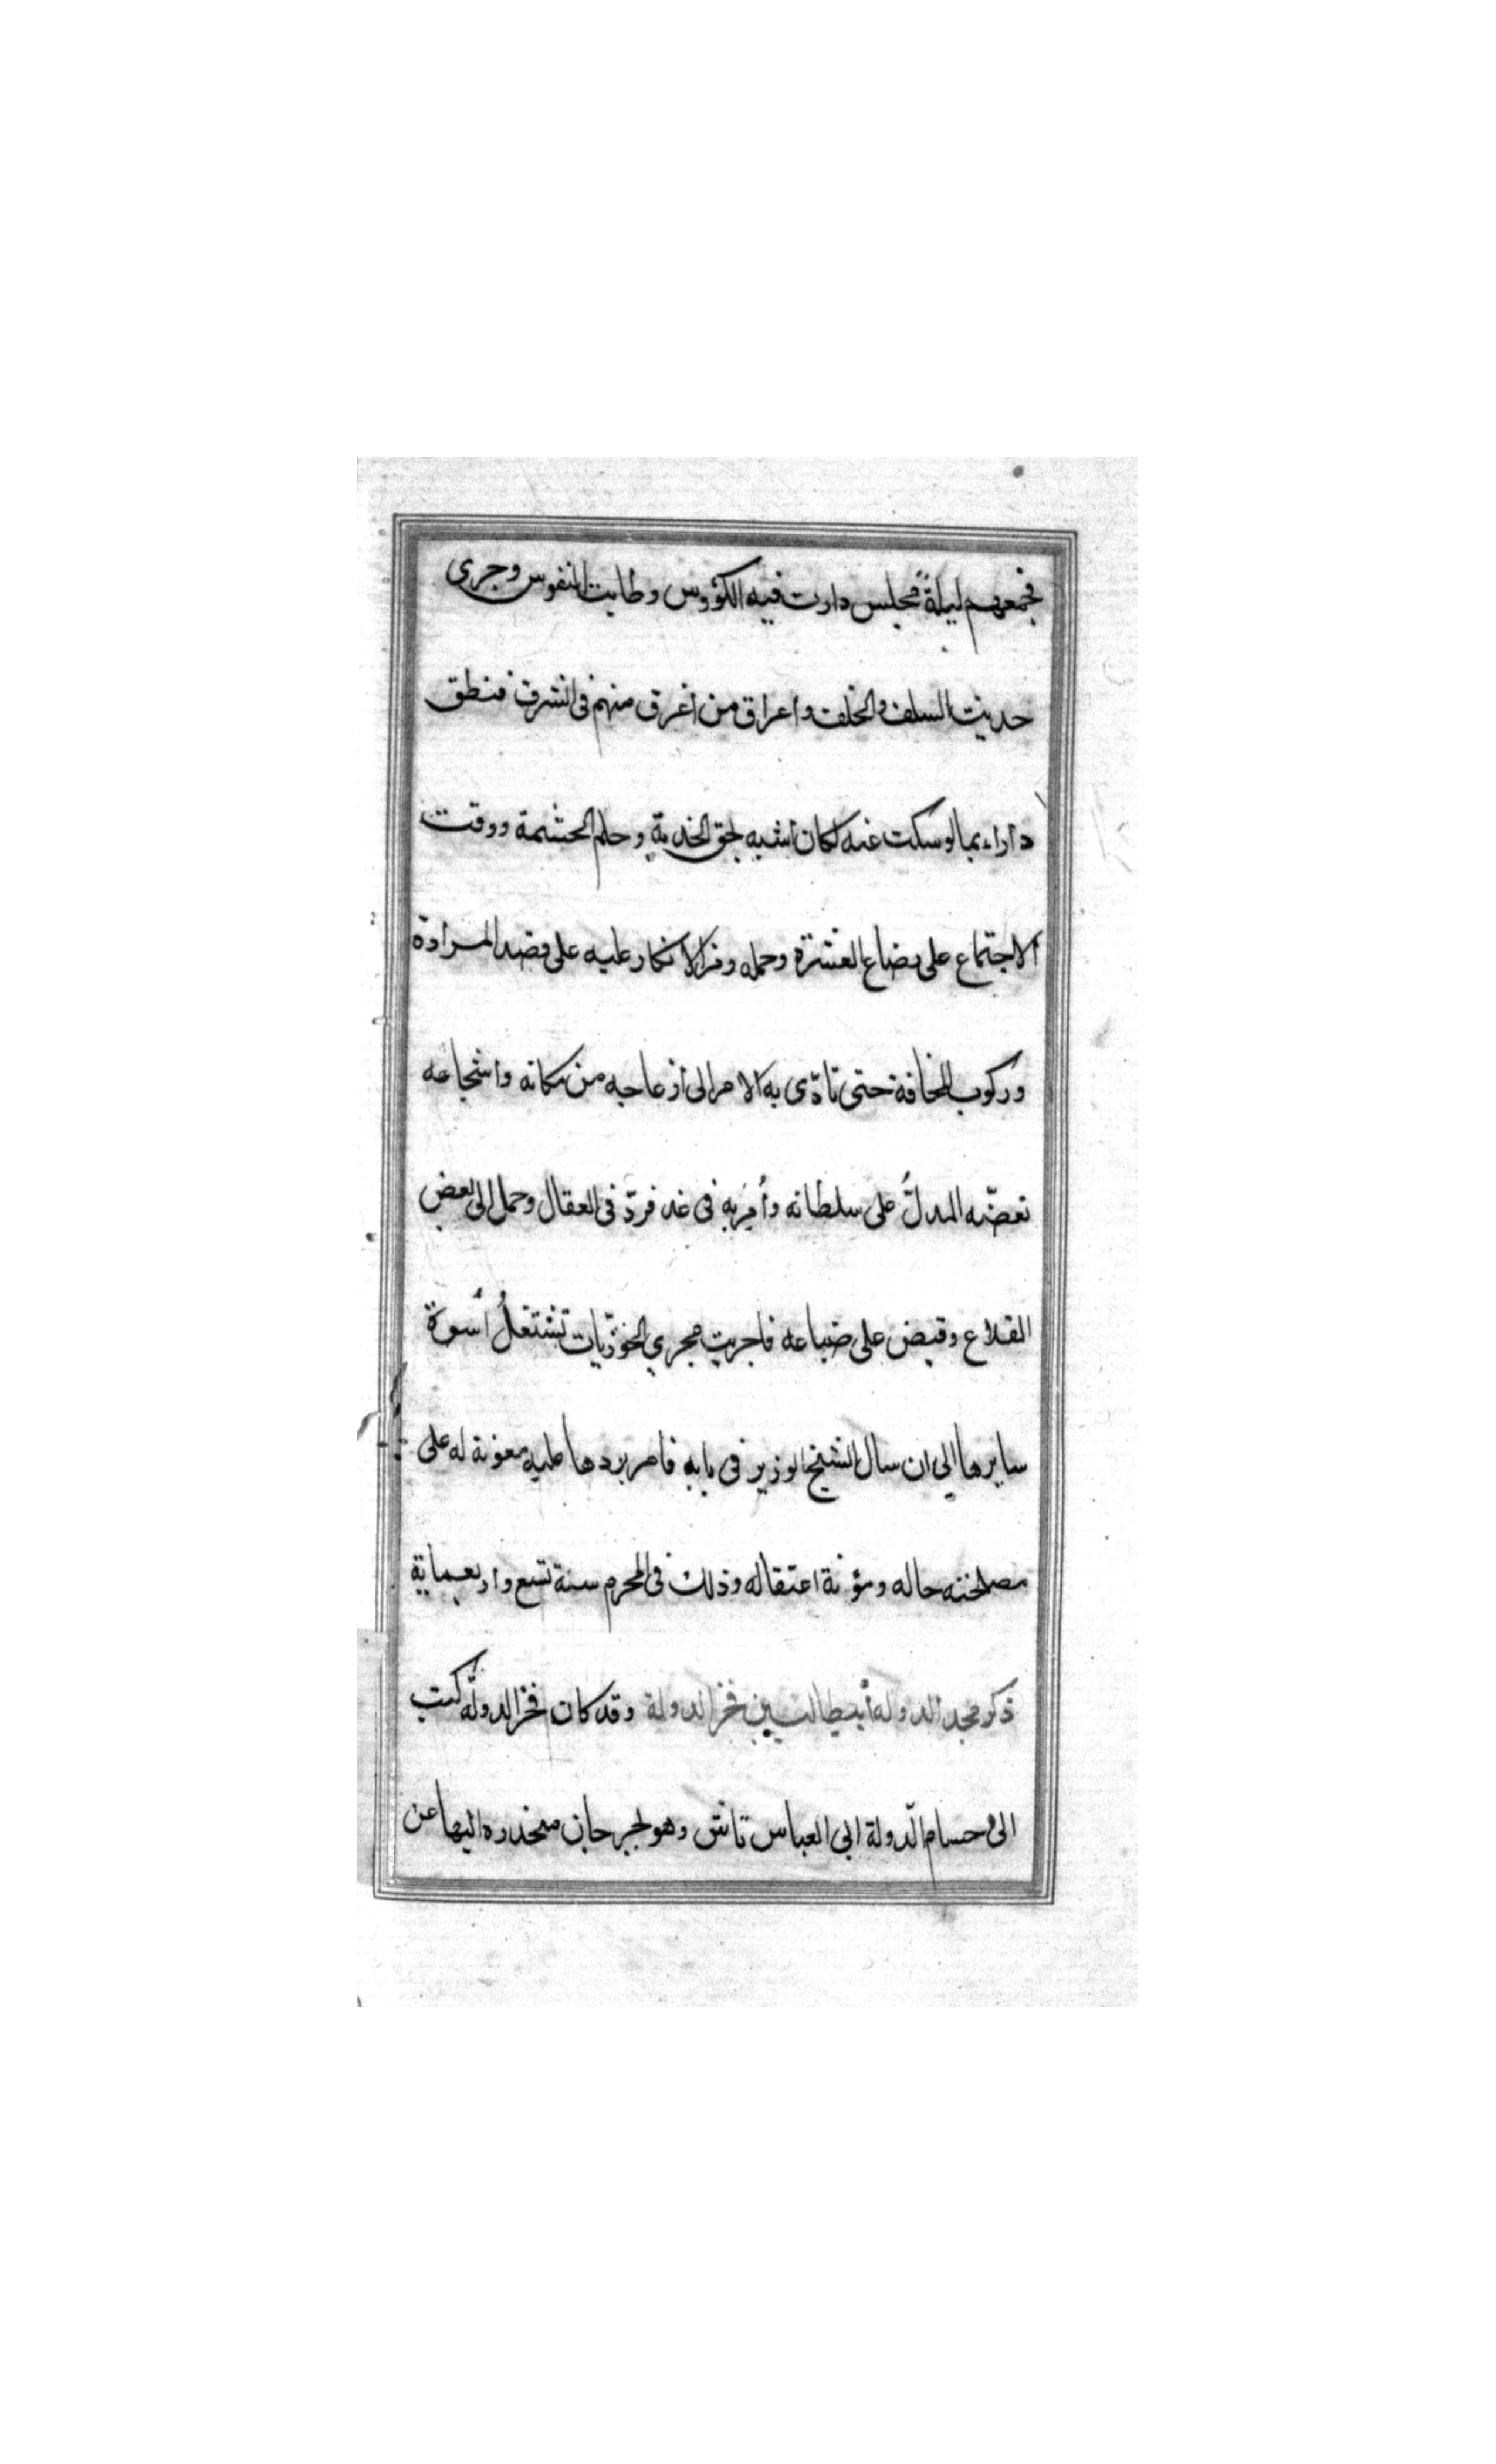 فجمعهم ليلةً مجلس دارت فيه الكؤوس وطابت النفوس وجرى
حديث السلف والخلف وأعراق من أغرق منهم فى الشرف فنطق
دارا بما لو سكت عنه لكان أشبه بحق الخدمة وحلم الحشمة ووقت
الاجتماع على رضاع العشرة وحمله وفر الانكار عليه على قصد المرادة
وركوب المخافة حتى تأدّى به الامر الى أزعاجه من مكانه وأشجاعه
تعضّبه المدلُّ على سلطانه وأُمِرَ به فى غد فردّ فى العقال وحمل الى بعض
القلاع وقبض على ضياعه فاجريت مجرى الحوزيّات تشتغلُ أسوة
سايرها الى ان سال الشيخ الوزير فى بابه فامر بردها عليه معونة له على
مصلحته حاله ومؤنة اعتقاله وذلك فى المحرم سنة تسع واربعماية
ذكر مجد الدولة أبيطالب بن فخر الدولة وقد كان فخر الدولة كتب
الى حسام الدّولة ابى العباس تاش وهو بجرجان منحدره اليها عن